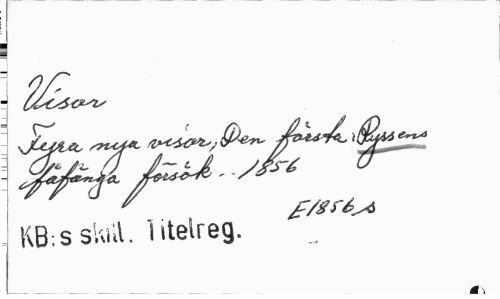 Visor
Fyra nya visor, Den första: Ryssens
fåfänga försök .. 1856
E1856s
KB:s skill. Titelreg.